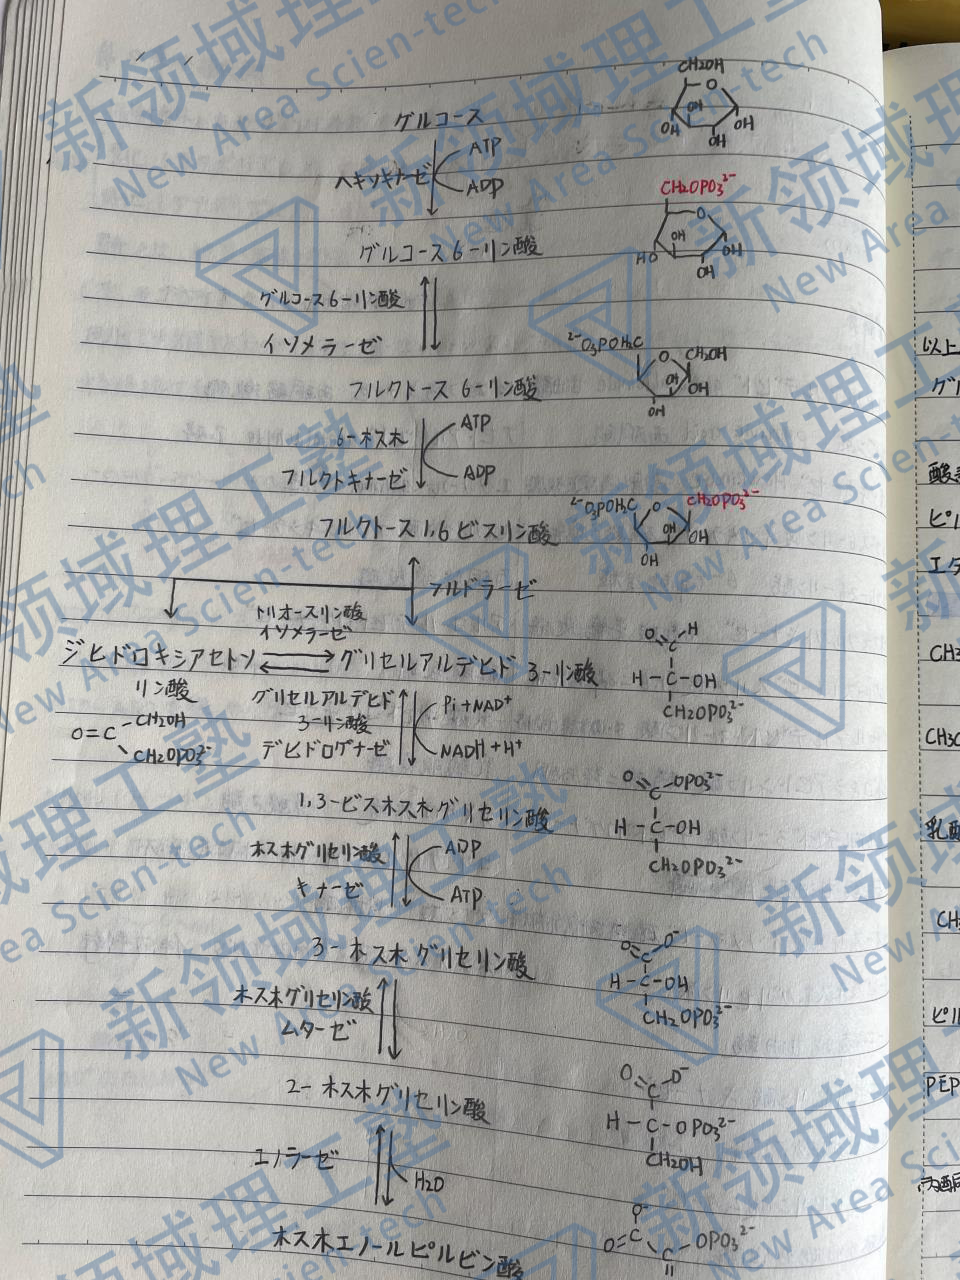 CH2OH
O
グルコース
OH
OH
OH
OH
ATP
ヘキソキナーゼ
ADP
CH2OPO3²⁻
O
グルコース 6-リン酸
OH
HO
OH
OH
グルコース6-リン酸
イソメラーゼ
²⁻O3POH2C
O
CH2OH
フルクトース 6-リン酸
OH
OH
OH
6-ホスホ
ATP
フルクトキナーゼ
ADP
²⁻O3POH2C
O
CH2OPO3²⁻
フルクトース 1,6 ビスリン酸
OH
OH
OH
フルドラーゼ
トリオースリン酸
イソメラーゼ
O
H
C
ジヒドロキシアセトン
グリセルアルデヒド 3-リン酸
H-C-OH
リン酸
CH2OPO3²⁻
グリセルアルデヒド
3-リン酸
デヒドロゲナーゼ
Pi+NAD⁺
NADH+H⁺
CH2OH
O=C
CH2OPO3²⁻
O
C
OPO3²⁻
1,3-ビスホスホグリセリン酸
H-C-OH
CH2OPO3²⁻
ホスホグリセリン酸
キナーゼ
ADP
ATP
3-ホスホグリセリン酸
O
C
O⁻
H-C-OH
CH2OPO3²⁻
ホスホグリセリン酸
ムターゼ
2-ホスホグリセリン酸
O
C
O⁻
H-C-OPO3²⁻
CH2OH
エノラーゼ
H2O
ホスホエノールピルビン酸
O⁻
O=C
C
OPO3²⁻
以上
グル
酸素
ピル
エタ
CH3
CH3C
乳酸
CH3
ピル
PEP
新领域理工塾
New Area Scien-tech